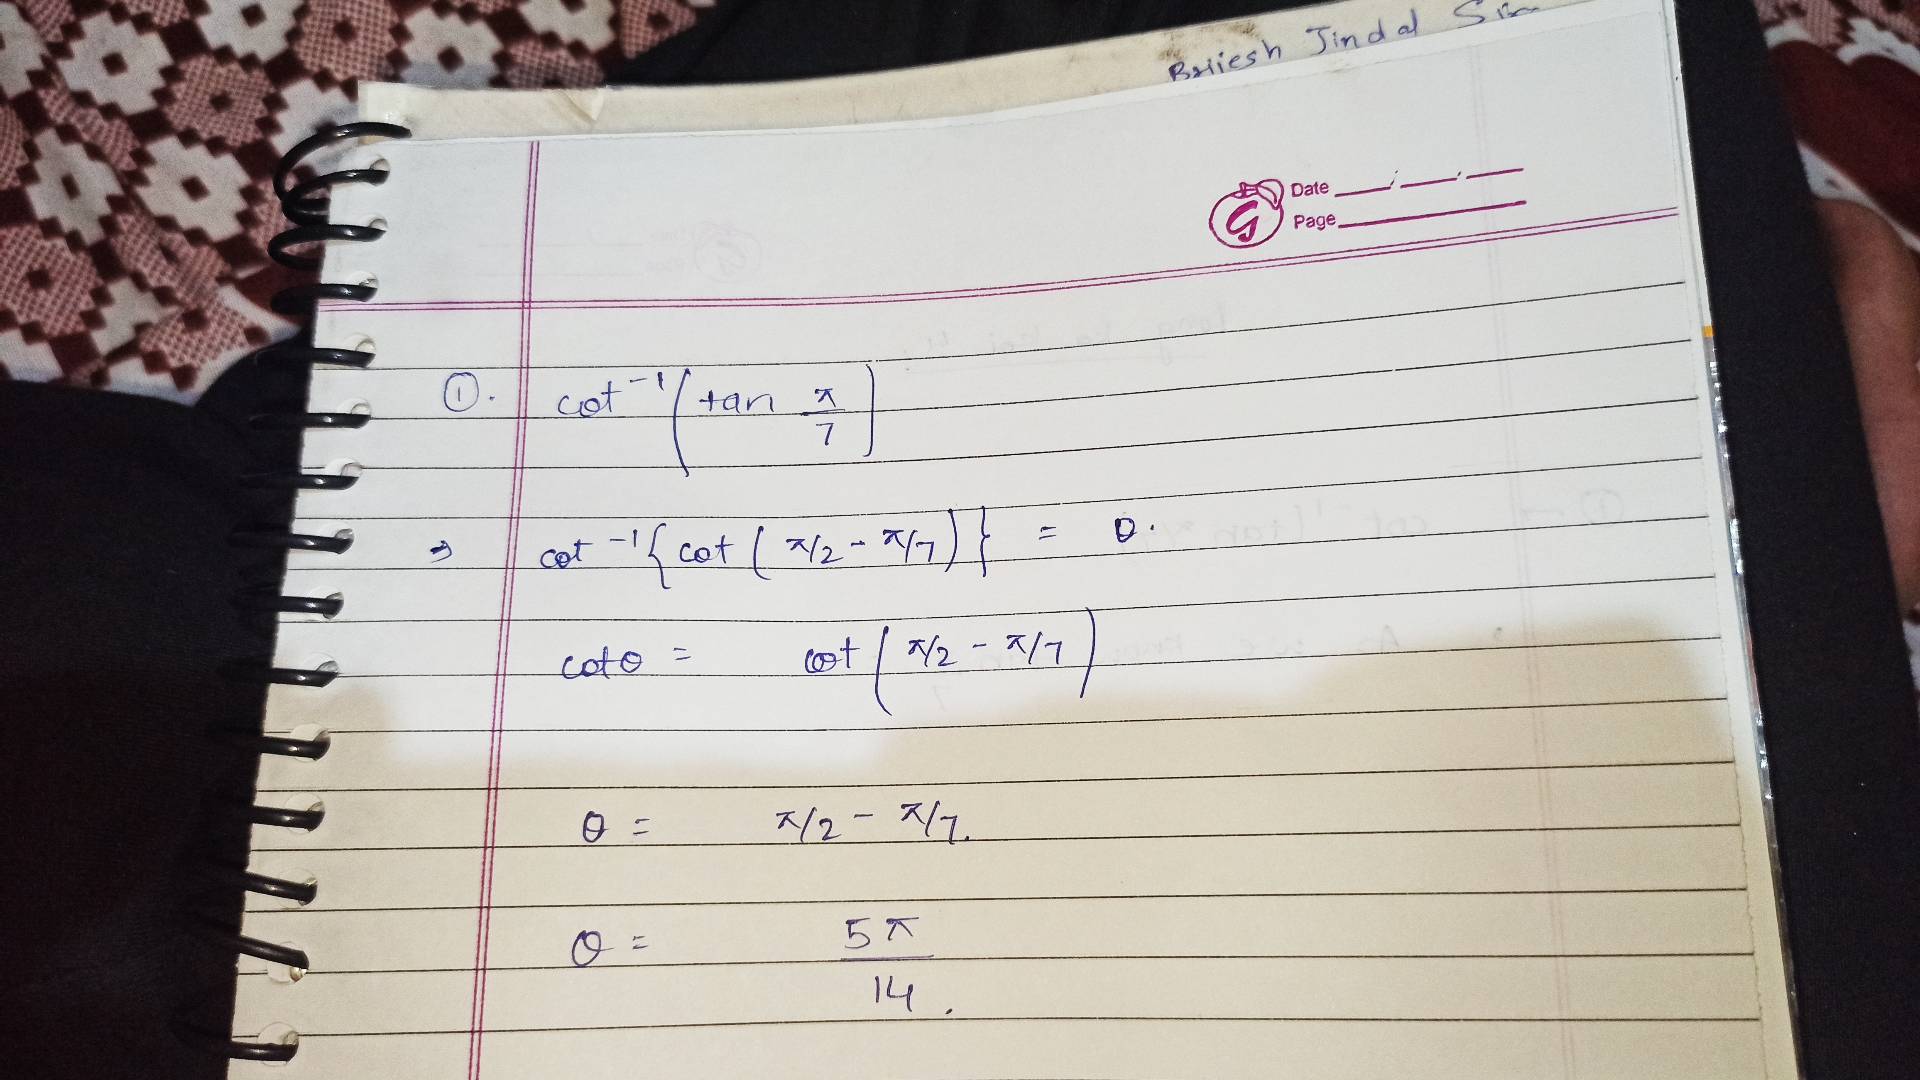 Brijesh Jindal
Date
Page
①. cot⁻¹(tan π/7)
⇒ cot⁻¹{cot(π/2 - π/7)} = θ.
cotθ = cot(π/2 - π/7)
θ = π/2 - π/7.
θ = 5π/14.